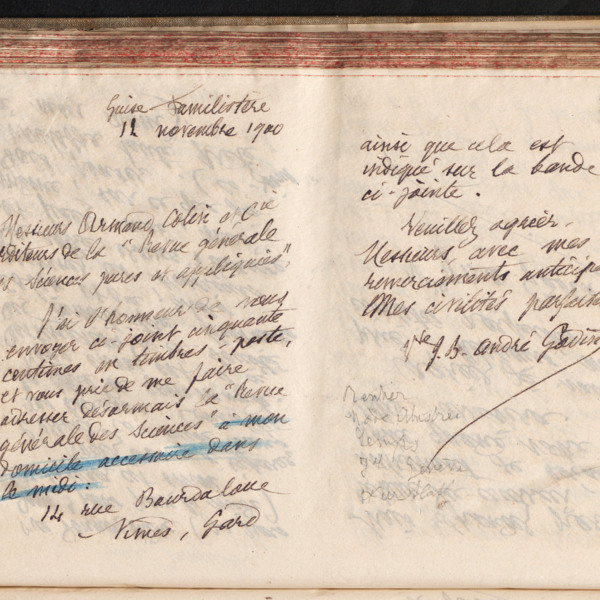 Guise Familistère
12 novembre 1900
Messieurs Armand Colin & Cie
éditeurs de la "Revue générale
des Sciences pures et appliquées",
J'ai l'honneur de vous
envoyer ci-joint cinquante
centimes en timbres-poste,
et vous prie de me faire
adresser désormais la "Revue
générale des Sciences" à mon
domicile accessoire dans
le midi:
14 rue Bourdaloue
Nîmes, Gard
ainsi que cela est
indiqué sur la bande
ci-jointe.
Veuillez agréer,
Messieurs, avec mes
remerciements anticipés
Mes civilités parfaites
Vve J. B. André Godin